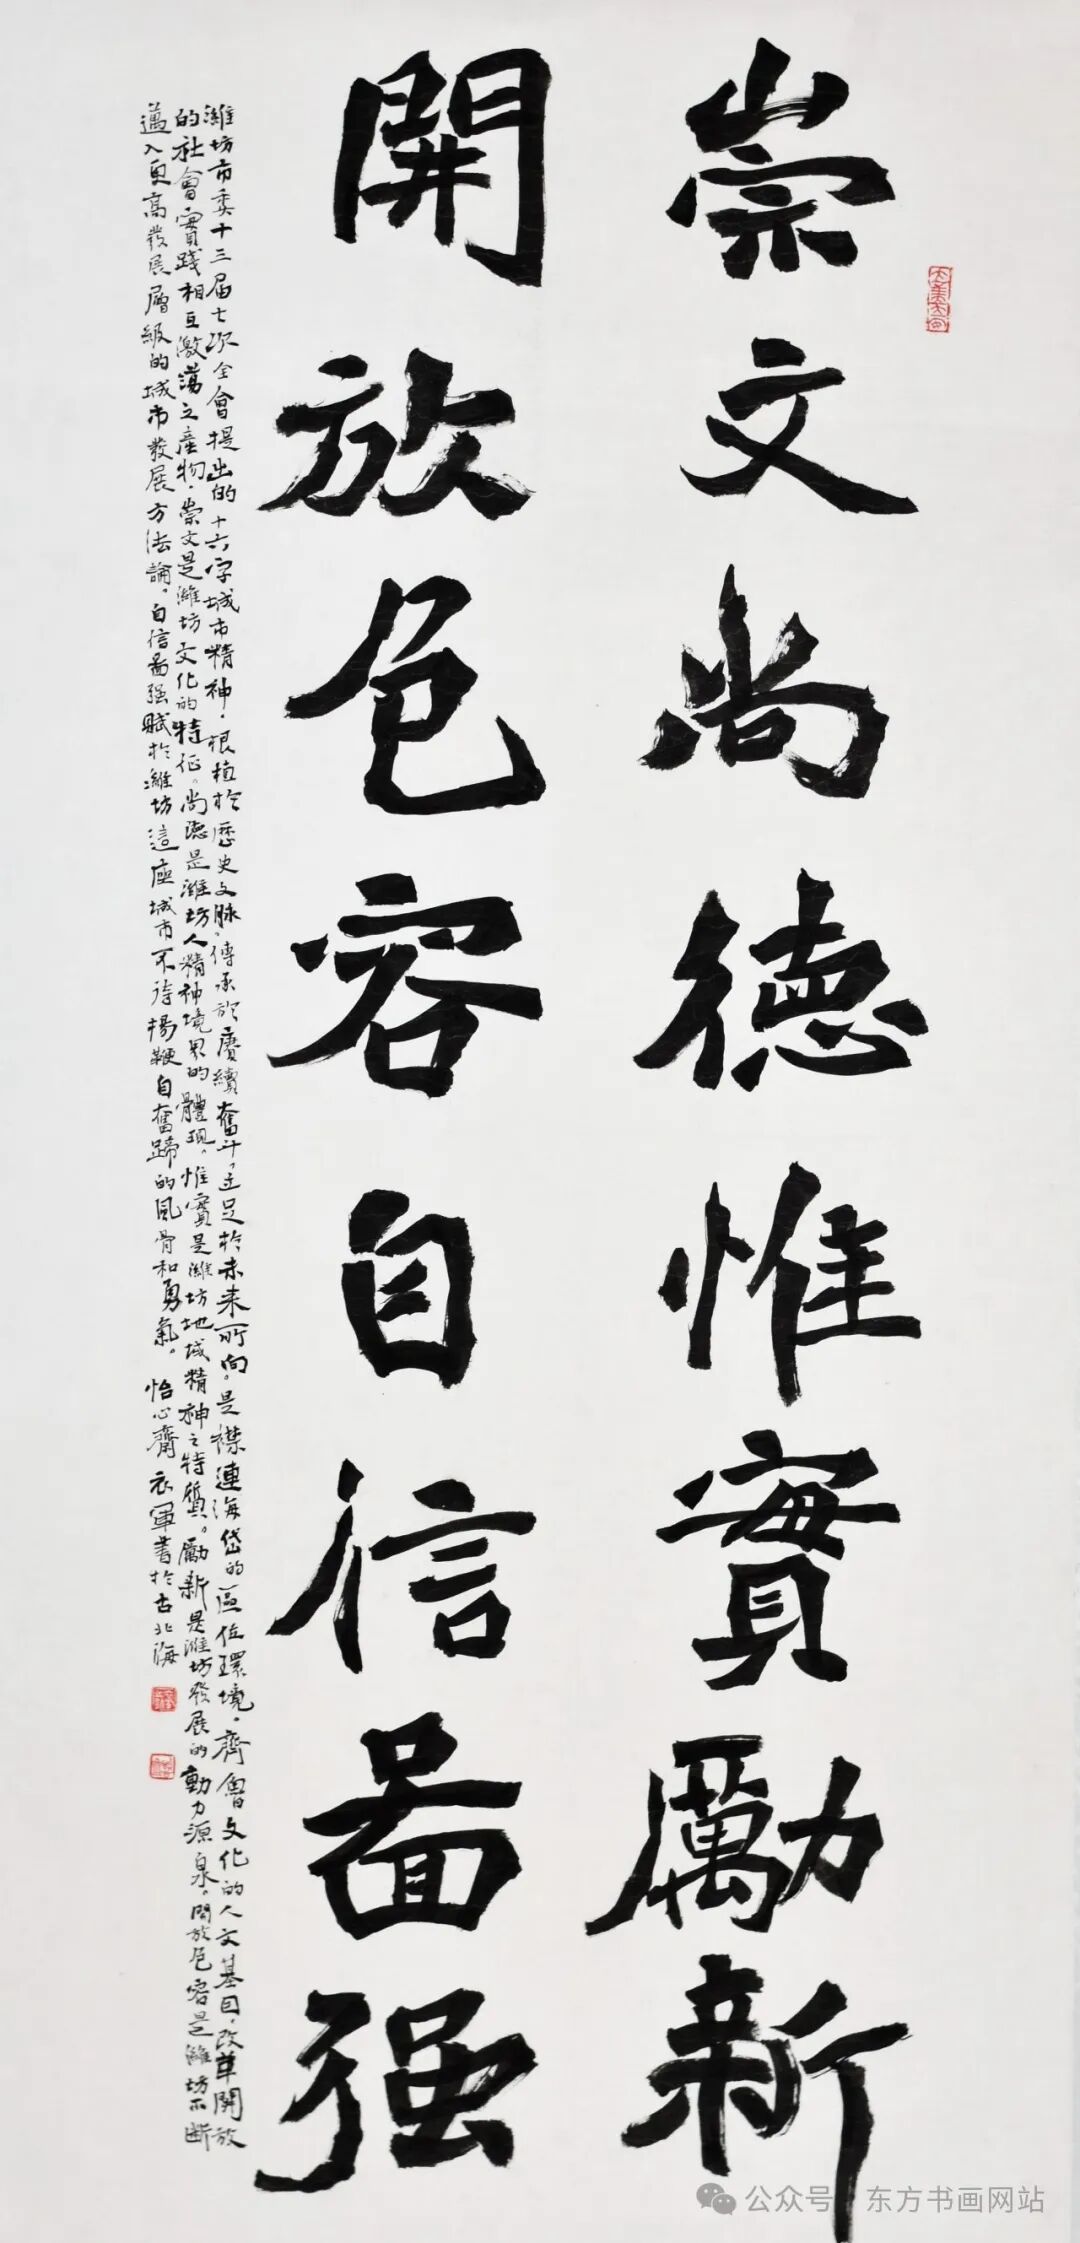 崇文尚德惟實勵新
開放包容自信啚强
濰坊市委十三届七次全會提出的十六字城市精神，根植於歷史文脉，傳承於賡續奮斗，立足於未来所向。是襟連海岱的區位環境，齊魯文化的人文基因，改革開放
的社會實踐相互激蕩之產物，崇文是濰坊文化的特征。尚德是濰坊人精神境界的體現。惟實是濰坊地域精神之特質。勵新是濰坊發展的動力源泉，開放包容是濰坊不断
邁入更高發展層級的城市發展方法論。自信啚强賦於濰坊這座城市不待揚鞭自奮蹄的風骨和勇氣。 怡心齋 衣軍書於古北海
公众号 · 东方书画网站